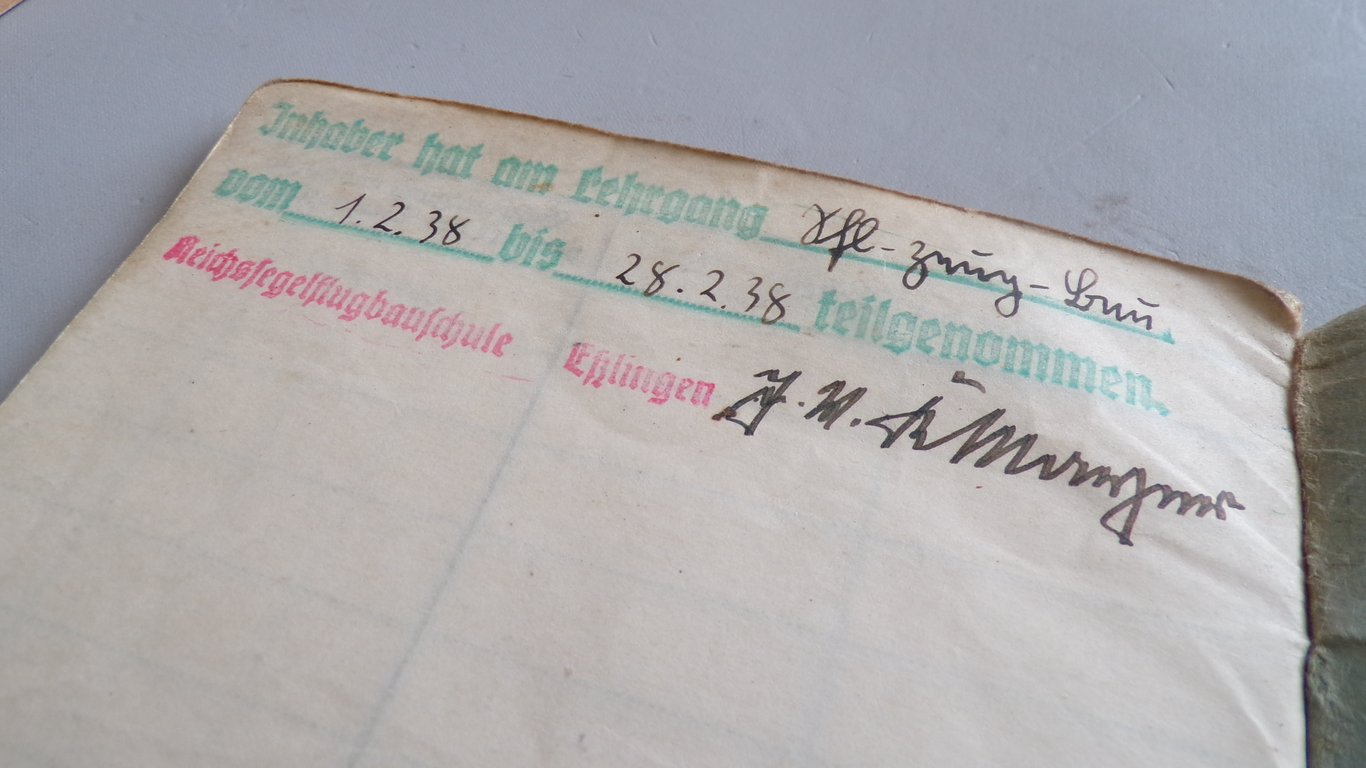 Inhaber hat am Lehrgang
vom 1.2.38 bis 28.2.38 teilgenommen.
Reichssegelflugbauschule Eßlingen